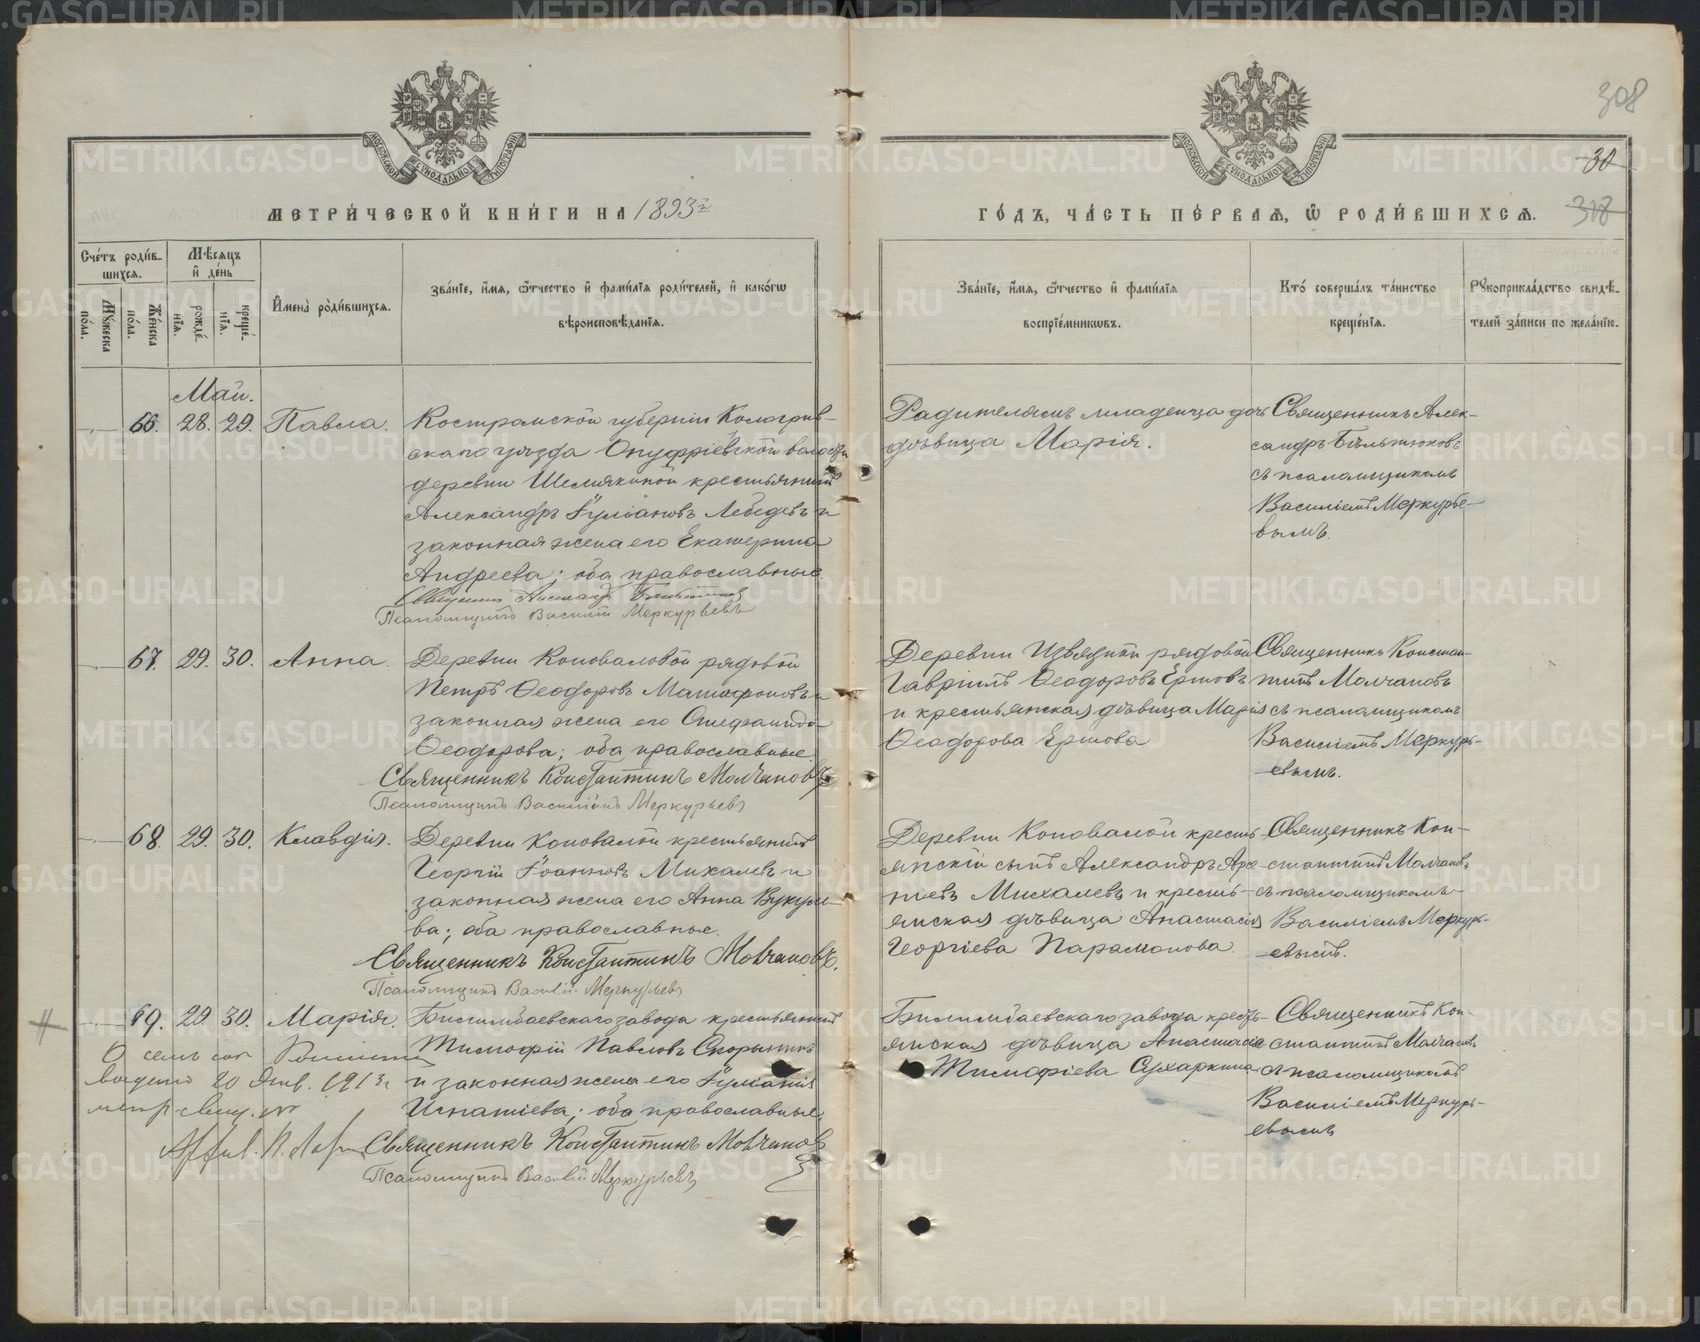 308
30
318
МОСКОВСКОЙ СѴНОДАЛЬНОЙ ТИПОГРАФІИ
МОСКОВСКОЙ СѴНОДАЛЬНОЙ ТИПОГРАФІИ
МЕТРИ́ЧЕСКОЙ КНИ́ГИ НА 1893й
ГО́ДЪ, ЧА́СТЬ ПЕ́РВАѦ, Ѽ РОДИ́ВШИХСѦ.
Сче́тъ роди́в-
шихсѧ.
Мꙋ́жеска по́ла.
Же́нска по́ла.
Мѣ́сѧцъ
и҆ де́нь
рожде́-
нїѧ.
креще́-
нїѧ.
И҆мена̀ роди́вшихсѧ.
Зва́нїе, и҆́мѧ, ѻ҆́тчество и҆ фами́лїѧ роди́телей, и҆ како́гѡ
вѣроисповѣ́данїѧ.
Зва́нїе, и҆́мѧ, ѻ҆́тчество и҆ фами́лїѧ
воспрїе́мникѡвъ.
Кто̀ соверша́лъ та́инство
креще́нїѧ.
Рꙋкоприкла́дство свидѣ́-
телей за́писи по жела́нїю.
Май.
66. 28. 29. Павла.
Костромской губерніи Кологрив-
скаго уѣзда Онуфріевской волости
деревни Шемякиной крестьянинъ
Александръ Іуліановъ Лебедевъ и
законная жена его Екатерина
Андреева; оба православные
Псаломщикъ Василій Меркурьевъ
Родителямъ младенца дочь
дѣвица Марія.
Священникъ Алек-
сандръ Бѣльтюковъ
съ псаломщикомъ
Василіемъ Меркурье-
вымъ.
67. 29. 30. Анна.
Деревни Коноваловой рядовой
Петръ Ѳеодоровъ и
законная жена его Стефанида
Ѳеодорова; оба православные.
Священникъ Константинъ Молчановъ
Псаломщикъ Василій Меркурьевъ
Деревни рядовой
Гавріилъ Ѳеодоровъ Ершовъ
и крестьянская дѣвица Марія
Ѳеодорова Ершова
Священникъ Констан-
тинъ Молчановъ
съ псаломщикомъ
Василіемъ Меркурь-
евымъ.
68. 29. 30. Клавдія.
Деревни Коноваловой крестьянинъ
Георгій Іоанновъ Михалевъ и
законная жена его Анна Вукуло-
ва; оба православные.
Священникъ Константинъ Молчановъ.
Псаломщикъ Василій Меркурьевъ
Деревни Коноваловой кресть-
янскій сынъ Александръ Арсе-
ніевъ Михалевъ и кресть-
янская дѣвица Анастасія
Георгіева Парамонова.
Священникъ Кон-
стантинъ Молчановъ
съ псаломщикомъ
Василіемъ Меркурь-
евымъ.
69. 29. 30. Марія.
Билимбаевскаго завода крестьянинъ
Тимофій Павловъ Скорынинъ
и законная жена его Іуліанія
Игнатіева; оба православные.
Священникъ Константинъ Молчановъ
Псаломщикъ Василій Меркурьевъ
О семъ
выдано 20 Янв. 1913 г.
Билимбаевскаго завода кресть-
янская дѣвица Анастасія
Тимофіева Сухаркина
Священникъ Кон-
стантинъ Молчановъ
съ псаломщикомъ
Василіемъ Меркурь-
евымъ
METRIKI.GASO-URAL.RU